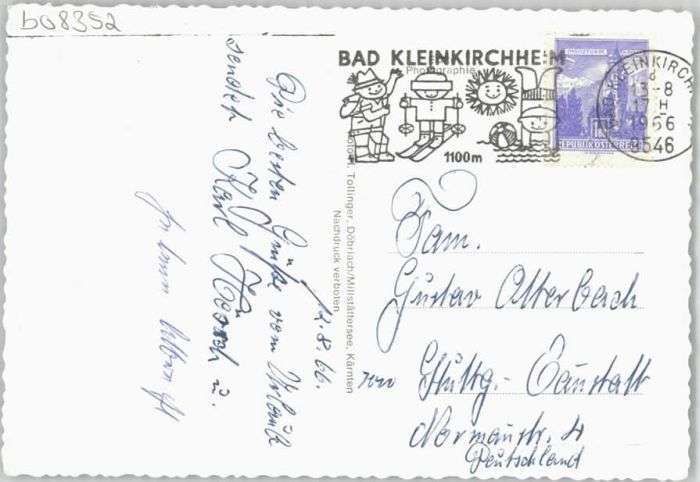 b08352
12.8.66.
Die besten Grüße vom Urlaub
sendet Karl u.
BAD KLEINKIRCHHEIM
1100m
KLEINKIRCH
13-8
1966
9546
REPUBLIK ÖSTERREICH
Photographie
Tollinger, Döbriach/Millstättersee, Kärnten
Nachdruck verboten
Fam.
Gustav Atterbach
Stuttg.- Cannstatt
Normannstr. 4
Deutschland